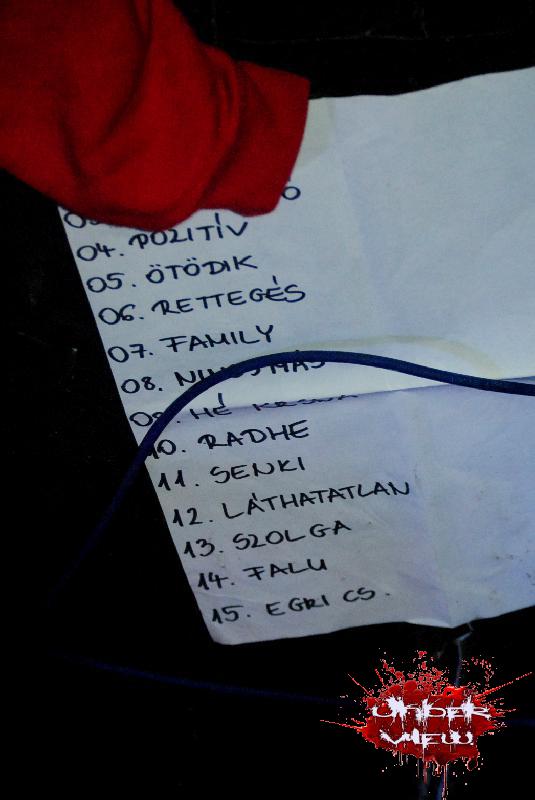 04. POZITÍV
05. ÖTÖDIK
06. RETTEGÉS
07. FAMILY
08.
09. HÉ
10. RADHE
11. SENKI
12. LÁTHATATLAN
13. SZOLGA
14. FALU
15. EGRI CS.
UNDER
VIEW